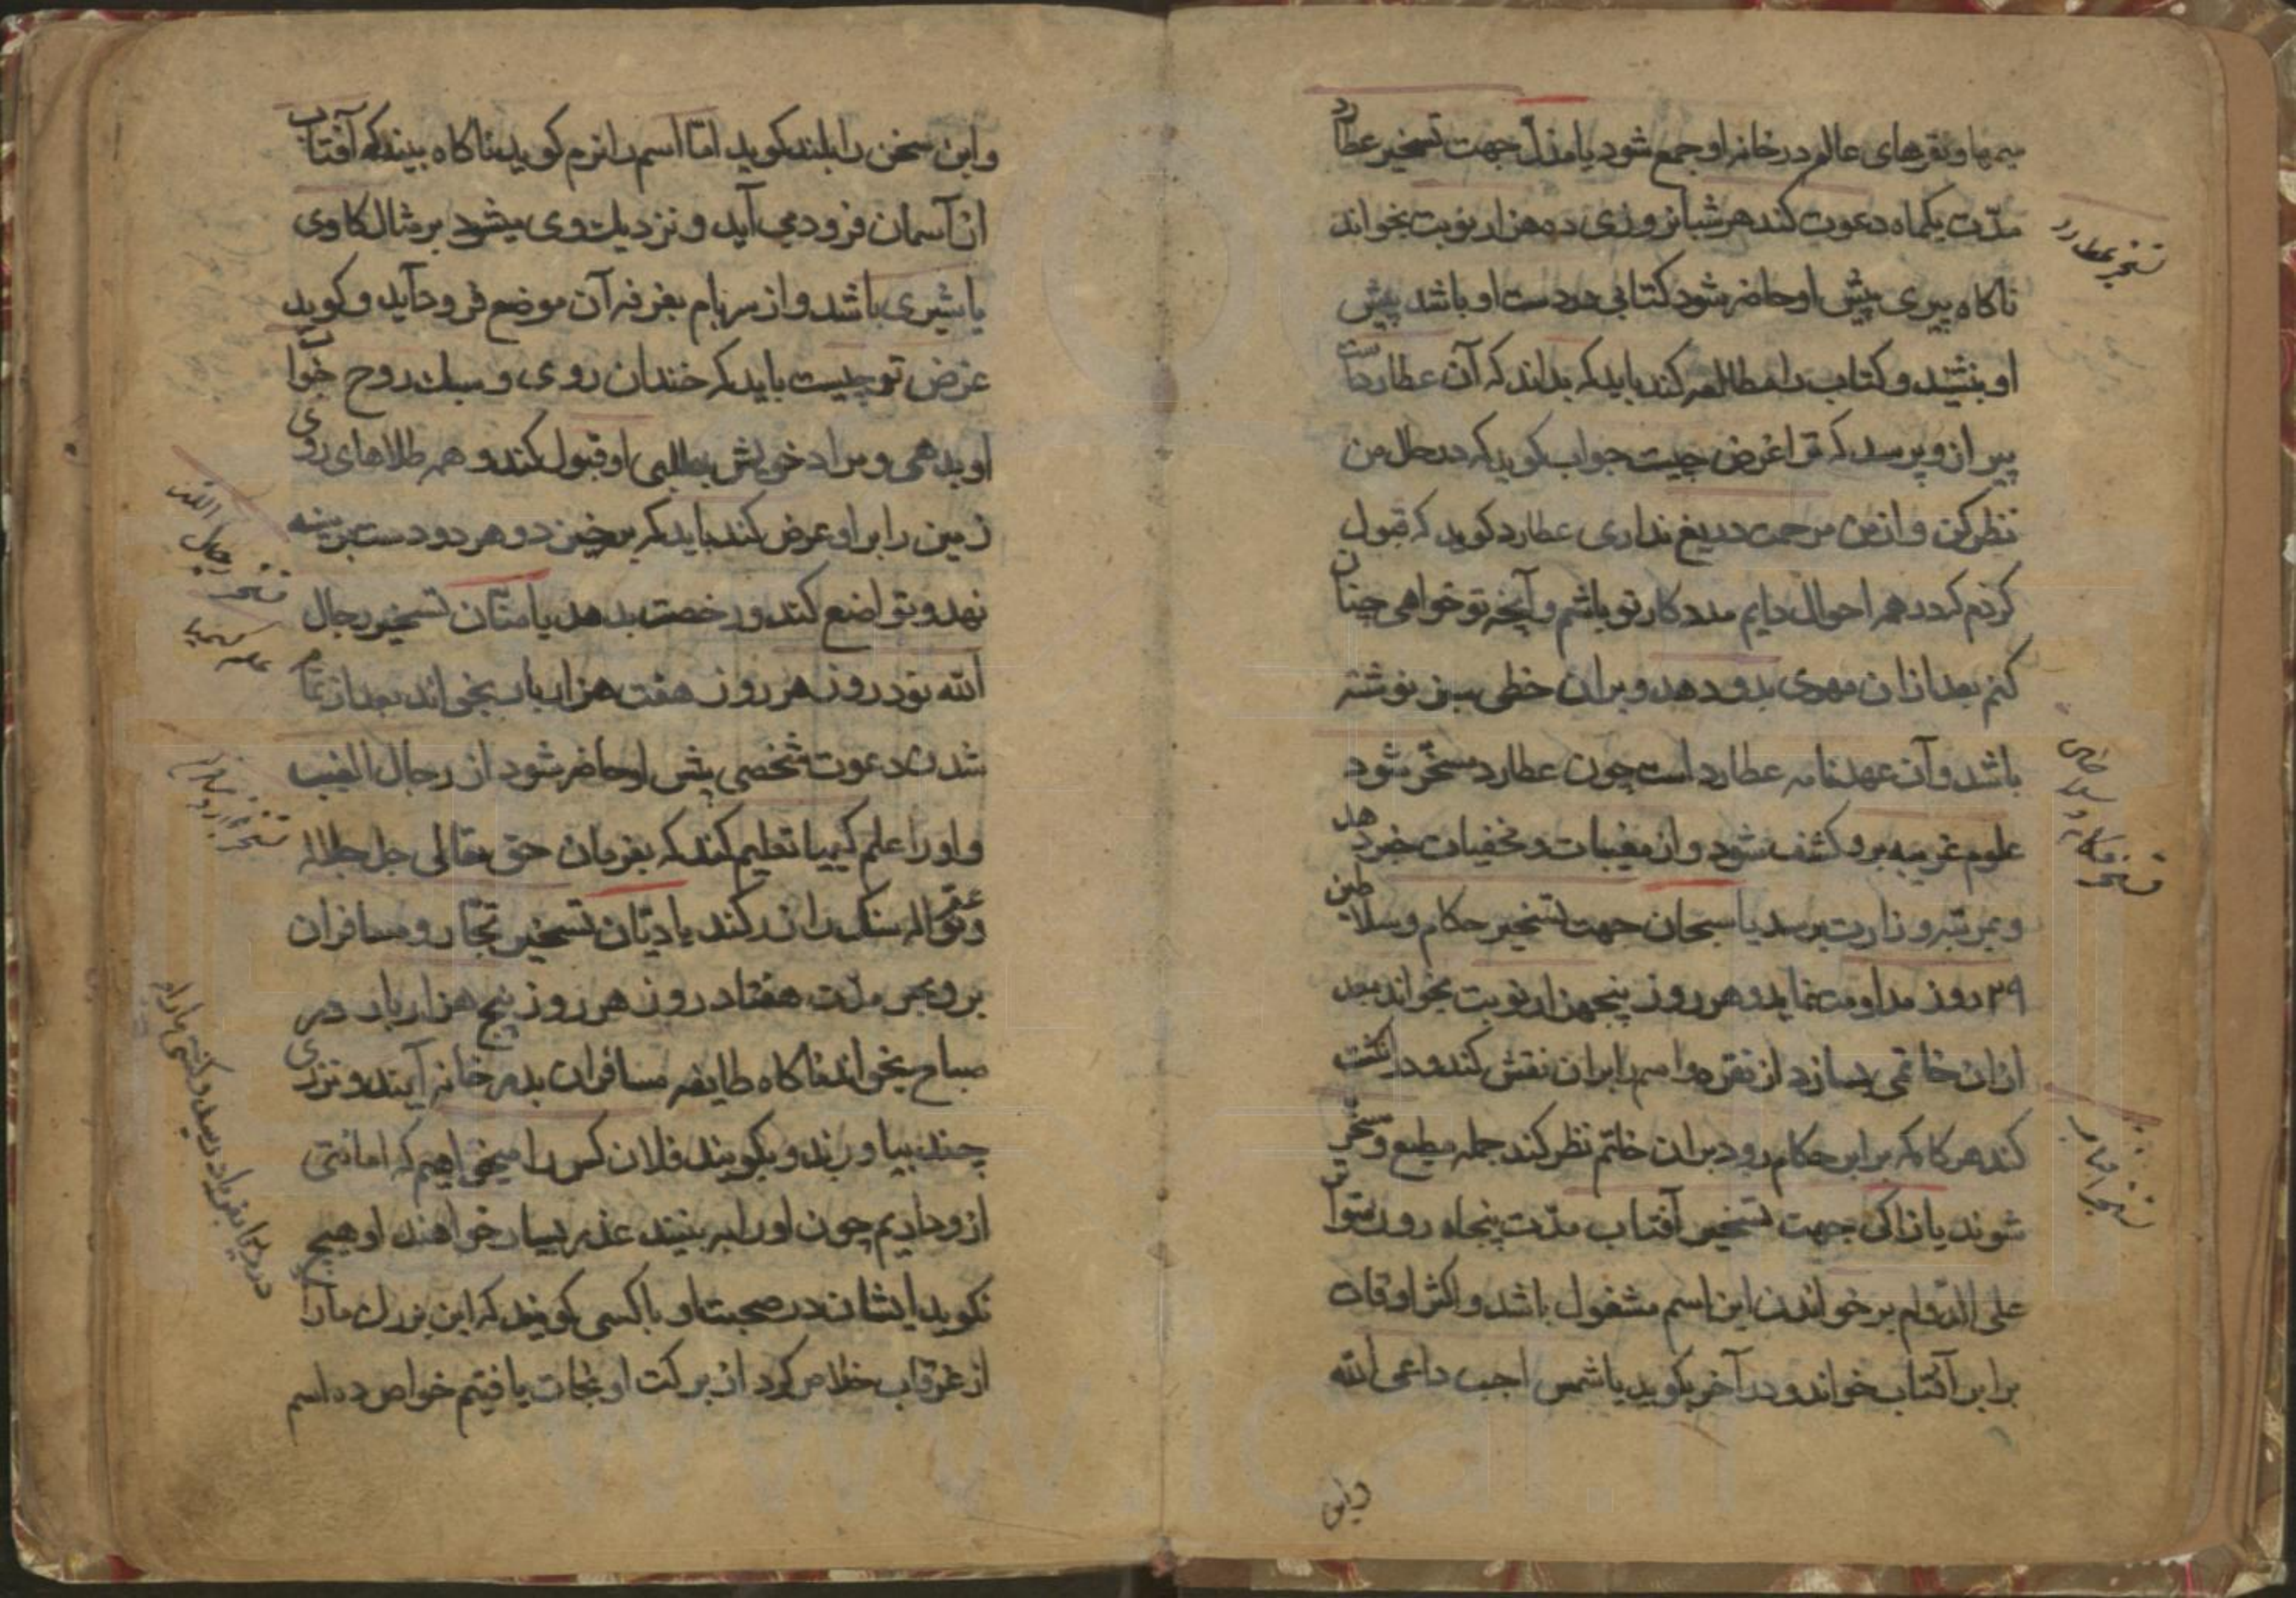 سیمها و نقرهای عالم در خانه او جمع شود یا مذل جهت تسخیر عطارد
مدّت یکماه دعوت کند هر شبانروزی ده هزار نوبت بخواند
ناکاه پیری پیش او حاضر شود کتابی در دست او باشد پیش
او بنشیند و کتاب را مطالعه کند باید که بداند که آن عطاردست
پیر ازو پرسد که ترا غرض چیست جواب کوید که در حال من
نظر کن و از من مرحمت دریغ نداری عطارد کوید که قبول
کردم که در همه احوال دایم مدد کار تو باشم و آنچه تو خواهی چنان
کنم بعد ازان مهری بدو دهد و بران خطی سبز نوشته
باشد و آن عهدنامه عطارد است چون عطارد مسخّر شود
علوم غریبه برو کشف شود و از مغیبات و مخفیات خبر دهد
و بمرتبه وزارت برسد یا سبحان جهت تسخیر حکام و سلاطین
۲۹ روز مداومت نماید و هر روز پنجهزار نوبت بخواند بعد
ازان خاتمی بسازد از نقره و اسم را بران نقش کند و در انکشت
کند هر کاه که برابر حکام رود بران خاتم نظر کند جمله مطیع و مسخّر
شوند یا زاکی جهت تسخیر آفتاب مدّت پنجاه روز متواتر
علی الدّوام بر خواندن این اسم مشغول باشد و اکثر اوقات
برابر آفتاب خواند و در آخر بکوید یا شمس اجب داعی الله
واین
تسخیر عطارد
تسخیر حکام و سلاطین
تسخیر آفتاب
و این سخن را بلند کوید امّا اسم را نرم کوید ناکاه بیند که آفتاب
از آسمان فرود می آید و نزدیک وی میشود بر مثال کاوی
یا شیری باشد و از سر بام بغرفه آن موضع فرود آید و کوید
غرض تو چیست باید که خندان روی و سبک روح جواب
او بدهی و مراد خویش بطلبی او قبول کند و همه طلاهای روی
زمین را بر او عرض کند باید که برخیزد و هر دو دست بر سینه
نهد و تواضع کند و رخصت بدهد یا منّان تسخیر رجال
الله نود روز هر روز هفت هزار بار بخواند بعد از تمام
شدن دعوت شخصی پیش او حاضر شود از رجال الغیب
و او را علم کیمیا تعلیم کند که بفرمان حق تعالی جل جلاله
و عمّ نواله سنک را زر کند یا دیّان تسخیر تجّار و مسافران
بر و بحر مدّت هفتاد روز هر روز پنج هزار بار در
صباح بخواند ناکاه طایفه مسافران بدر خانه آیند و نزدی
چند بیاورند و بکویند فلان کس را میخواهیم که امانتی
ازو داریم چون او را به بینند عذر بسیار خواهند او هیچ
نکوید ایشان در صحبت او با کسی کویند که این بزرک ما را
از غرقاب خلاص کرد از برکت او نجات یافتیم خواص ده اسم
تسخیر رجال الله
علم کیمیا
تسخیر تجار و مسافران
در دریا بفریاد رسید و کشتی ما را